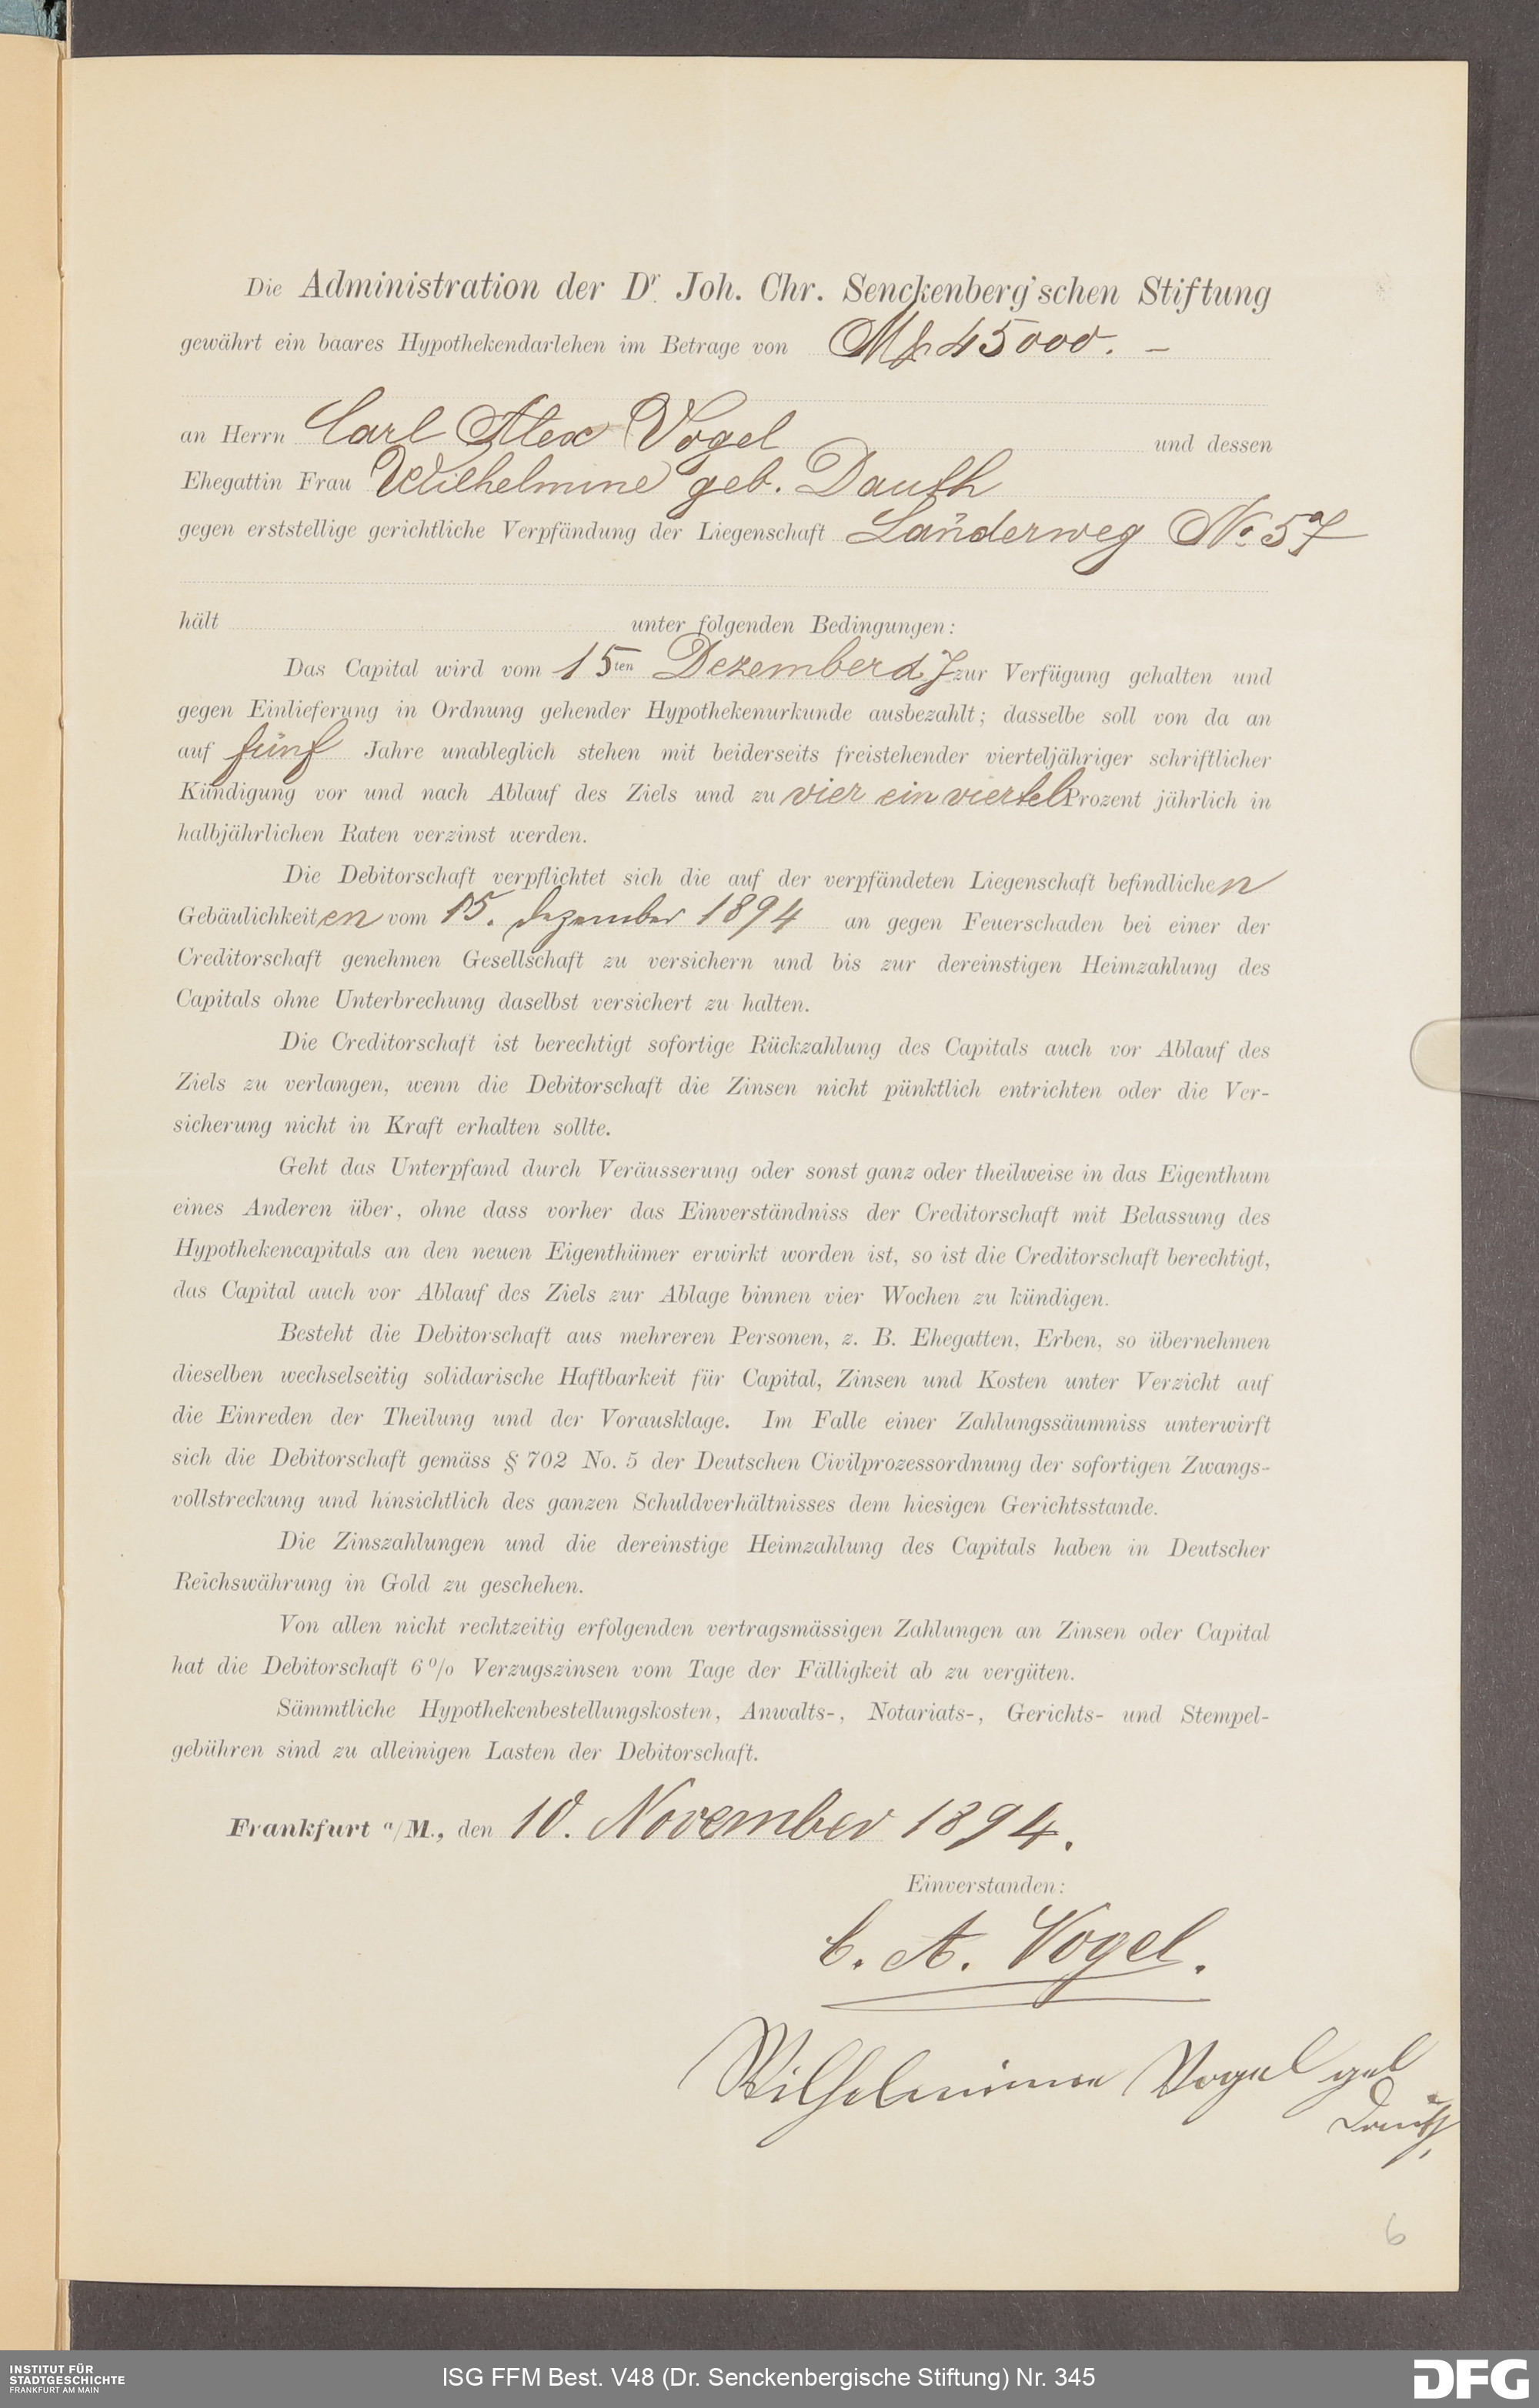 Die Administration der Dr. Joh. Chr. Senckenberg'schen Stiftung
gewährt ein baares Hypothekendarlehen im Betrage von Mk 45000. –
an Herrn Carl Alex Vogel und dessen
Ehegattin Frau Wilhelmine geb. Dauth
gegen erststellige gerichtliche Verpfändung der Liegenschaft Landerweg No. 57
hält unter folgenden Bedingungen:
Das Capital wird vom 15ten Dezember d. J. zur Verfügung gehalten und
gegen Einlieferung in Ordnung gehender Hypothekenurkunde ausbezahlt; dasselbe soll von da an
auf fünf Jahre unableglich stehen mit beiderseits freistehender vierteljähriger schriftlicher
Kündigung vor und nach Ablauf des Ziels und zu vier ein viertel Prozent jährlich in
halbjährlichen Raten verzinst werden.
Die Debitorschaft verpflichtet sich die auf der verpfändeten Liegenschaft befindlichen
Gebäulichkeiten vom 15. Dezember 1894 an gegen Feuerschaden bei einer der
Creditorschaft genehmen Gesellschaft zu versichern und bis zur dereinstigen Heimzahlung des
Capitals ohne Unterbrechung daselbst versichert zu halten.
Die Creditorschaft ist berechtigt sofortige Rückzahlung des Capitals auch vor Ablauf des
Ziels zu verlangen, wenn die Debitorschaft die Zinsen nicht pünktlich entrichten oder die Ver-
sicherung nicht in Kraft erhalten sollte.
Geht das Unterpfand durch Veräusserung oder sonst ganz oder theilweise in das Eigenthum
eines Anderen über, ohne dass vorher das Einverständniss der Creditorschaft mit Belassung des
Hypothekencapitals an den neuen Eigenthümer erwirkt worden ist, so ist die Creditorschaft berechtigt,
das Capital auch vor Ablauf des Ziels zur Ablage binnen vier Wochen zu kündigen.
Besteht die Debitorschaft aus mehreren Personen, z. B. Ehegatten, Erben, so übernehmen
dieselben wechselseitig solidarische Haftbarkeit für Capital, Zinsen und Kosten unter Verzicht auf
die Einreden der Theilung und der Vorausklage. Im Falle einer Zahlungssäumniss unterwirft
sich die Debitorschaft gemäss § 702 No. 5 der Deutschen Civilprozessordnung der sofortigen Zwangs-
vollstreckung und hinsichtlich des ganzen Schuldverhältnisses dem hiesigen Gerichtsstande.
Die Zinszahlungen und die dereinstige Heimzahlung des Capitals haben in Deutscher
Reichswährung in Gold zu geschehen.
Von allen nicht rechtzeitig erfolgenden vertragsmässigen Zahlungen an Zinsen oder Capital
hat die Debitorschaft 6 % Verzugszinsen vom Tage der Fälligkeit ab zu vergüten.
Sämmtliche Hypothekenbestellungskosten, Anwalts-, Notariats-, Gerichts- und Stempel-
gebühren sind zu alleinigen Lasten der Debitorschaft.
Frankfurt a/M., den 10. November 1894.
Einverstanden:
C. A. Vogel.
Wilhelmine Vogel geb
Dauth,
6
INSTITUT FÜR
STADTGESCHICHTE
FRANKFURT AM MAIN
ISG FFM Best. V48 (Dr. Senckenbergische Stiftung) Nr. 345
DFG